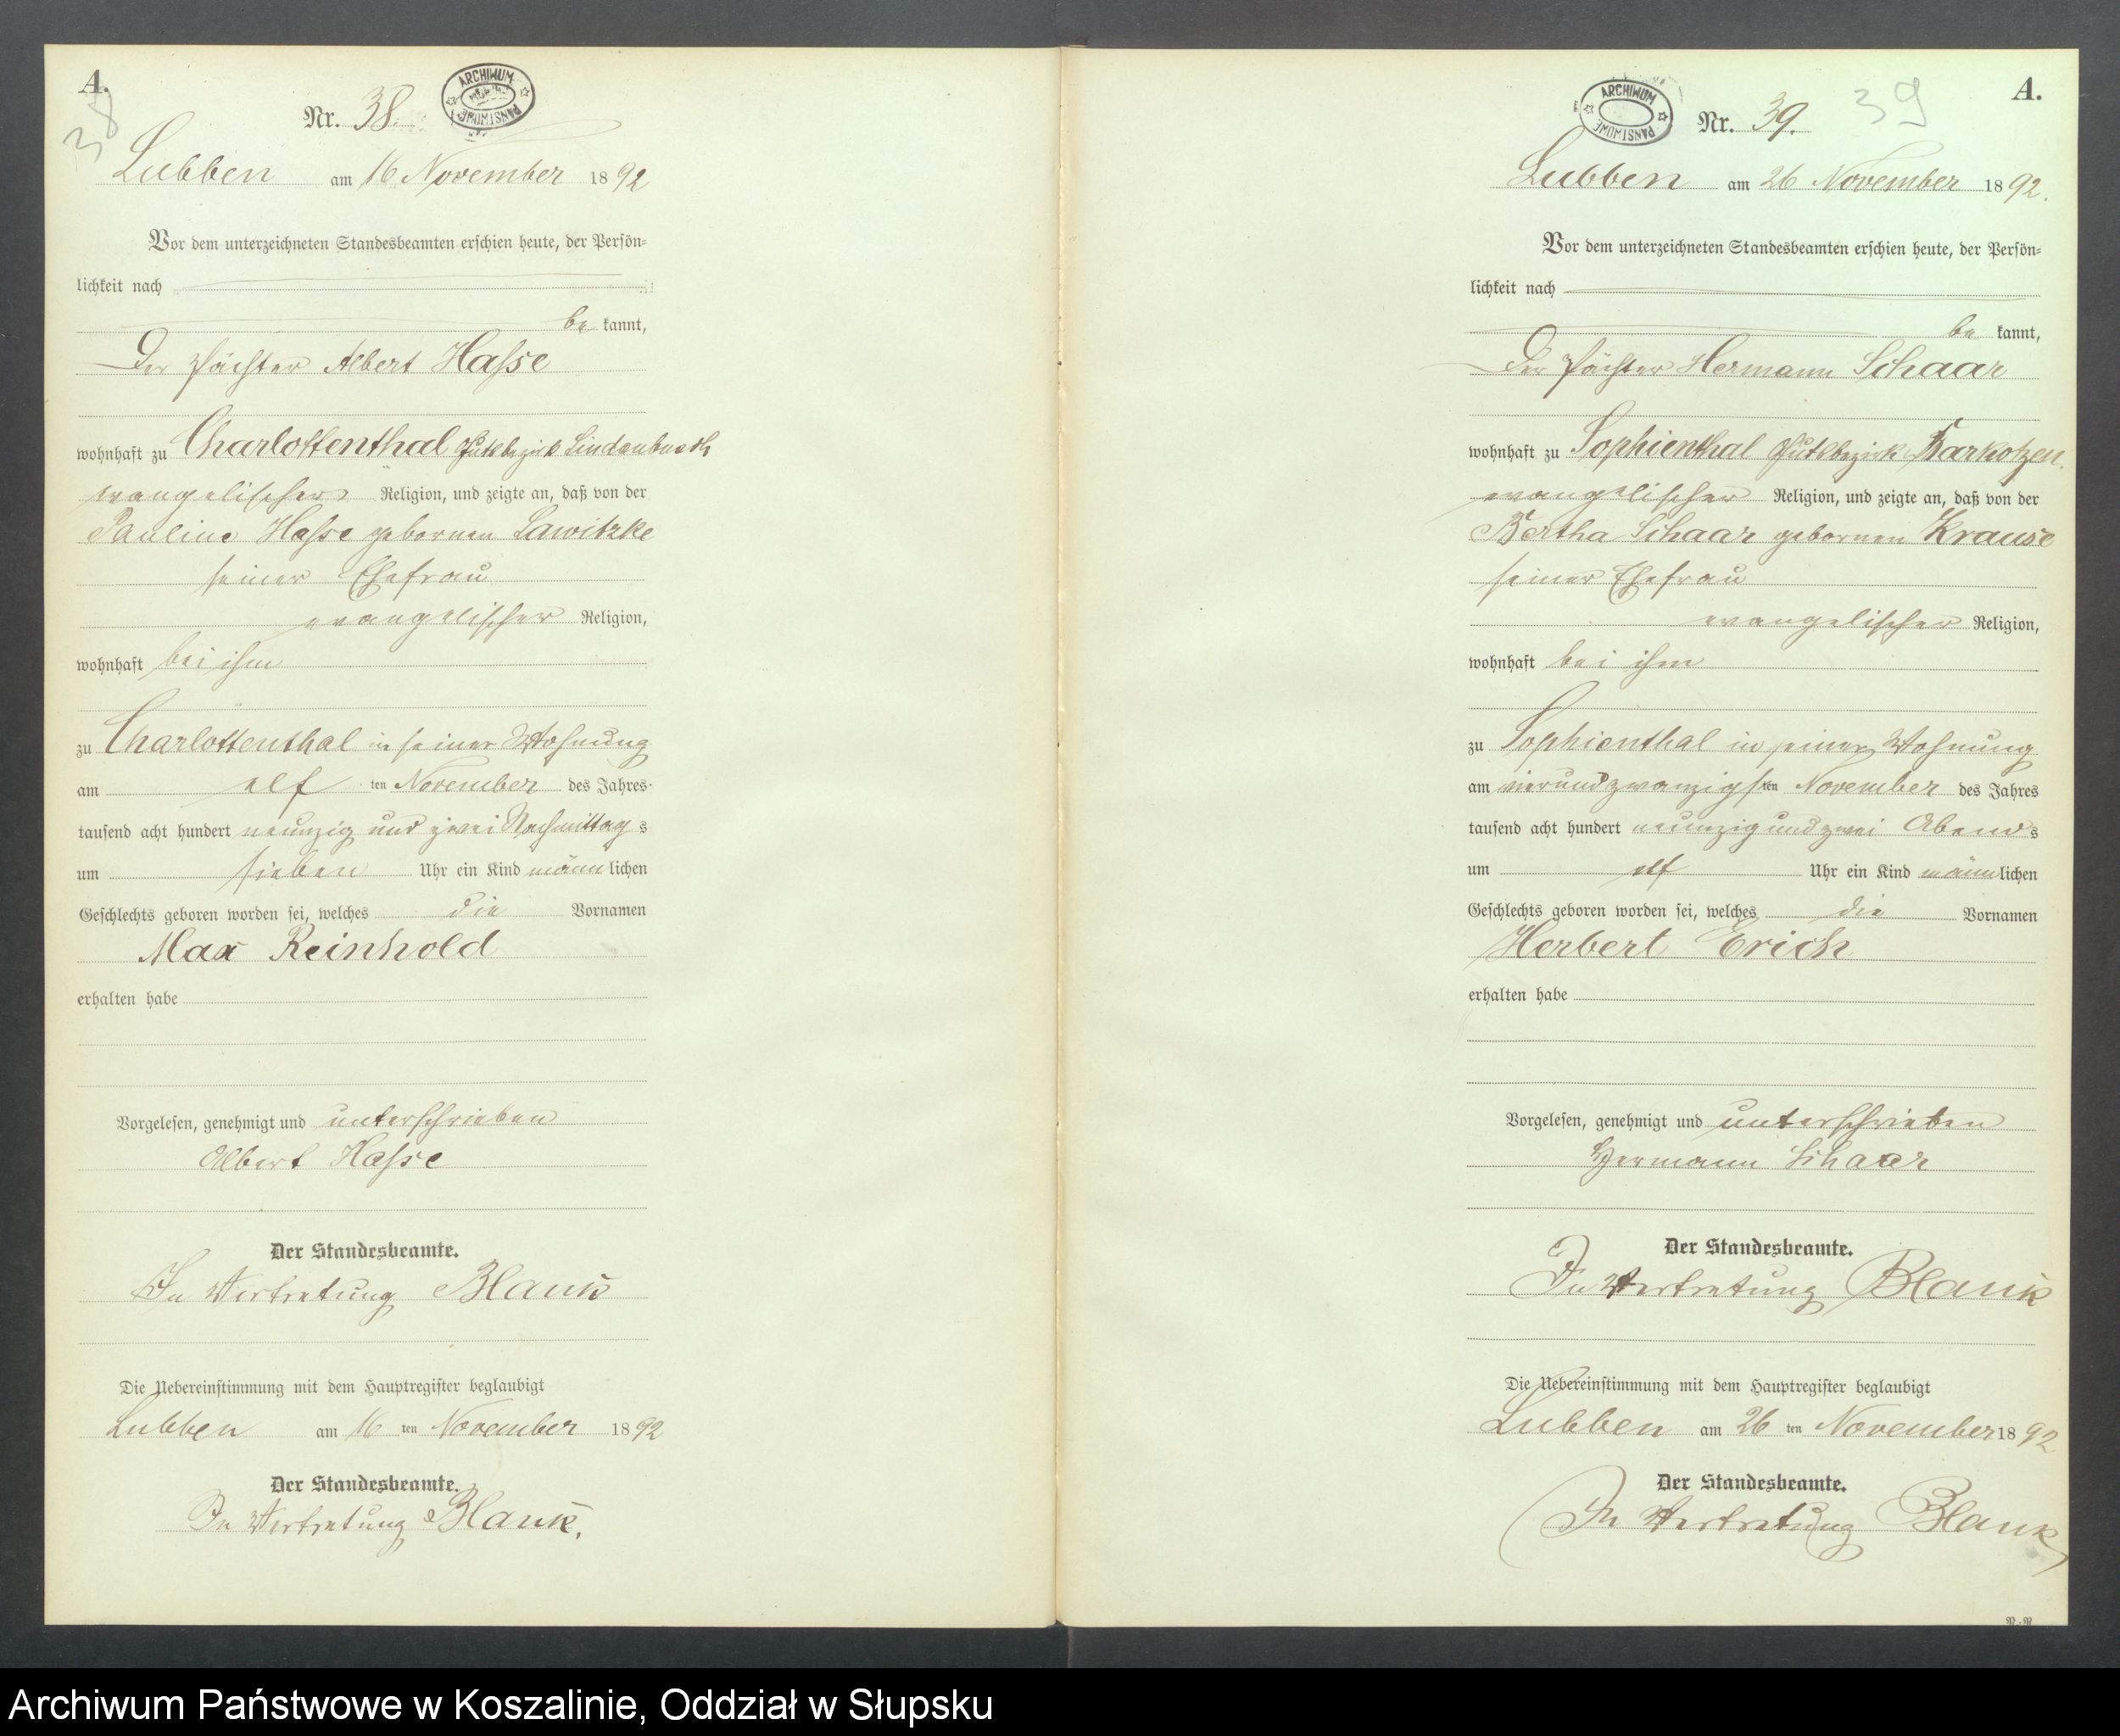 A.
38
Nr. 38.
ARCHIWUM
PAŃSTWOWE
Lubben am 16 November 1892
Vor dem unterzeichneten Standesbeamten erschien heute, der Persön-
lichkeit nach
be kannt,
Der Pächter Albert Hasse
wohnhaft zu Charlottenthal Gutsbezirk Lindenbusch
evangelischer Religion, und zeigte an, daß von der
Pauline Hasse gebornen Lawitzke
seiner Ehefrau
evangelischer Religion,
wohnhaft bei ihm
zu Charlottenthal in seiner Wohnung
am elf ten November des Jahres
tausend acht hundert neunzig und zwei Nachmittags
um sieben Uhr ein Kind männlichen
Geschlechts geboren worden sei, welches die Vornamen
Max Reinhold
erhalten habe
Vorgelesen, genehmigt und unterschrieben
Albert Hasse
Der Standesbeamte.
In Vertretung Blank
Die Uebereinstimmung mit dem Hauptregister beglaubigt
Lubben am 16 ten November 1892
Der Standesbeamte.
In Vertretung Blank.
A.
39
Nr. 39.
ARCHIWUM
PAŃSTWOWE
Lubben am 26 November 1892.
Vor dem unterzeichneten Standesbeamten erschien heute, der Persön-
lichkeit nach
be kannt,
Der Pächter Hermann Schaar
wohnhaft zu Sophienthal Gutsbezirk Barkotzen.
evangelischer Religion, und zeigte an, daß von der
Bertha Schaar gebornen Krause
seiner Ehefrau
evangelischer Religion,
wohnhaft bei ihm
zu Sophienthal in seiner Wohnung
am vierundzwanzigsten November des Jahres
tausend acht hundert neunzig und zwei Abends
um elf Uhr ein Kind männlichen
Geschlechts geboren worden sei, welches die Vornamen
Herbert Erich
erhalten habe
Vorgelesen, genehmigt und unterschrieben
Hermann Schaar
Der Standesbeamte.
In Vertretung Blank
Die Uebereinstimmung mit dem Hauptregister beglaubigt
Lubben am 26 ten November 1892
Der Standesbeamte.
In Vertretung Blank
Archiwum Państwowe w Koszalinie, Oddział w Słupsku